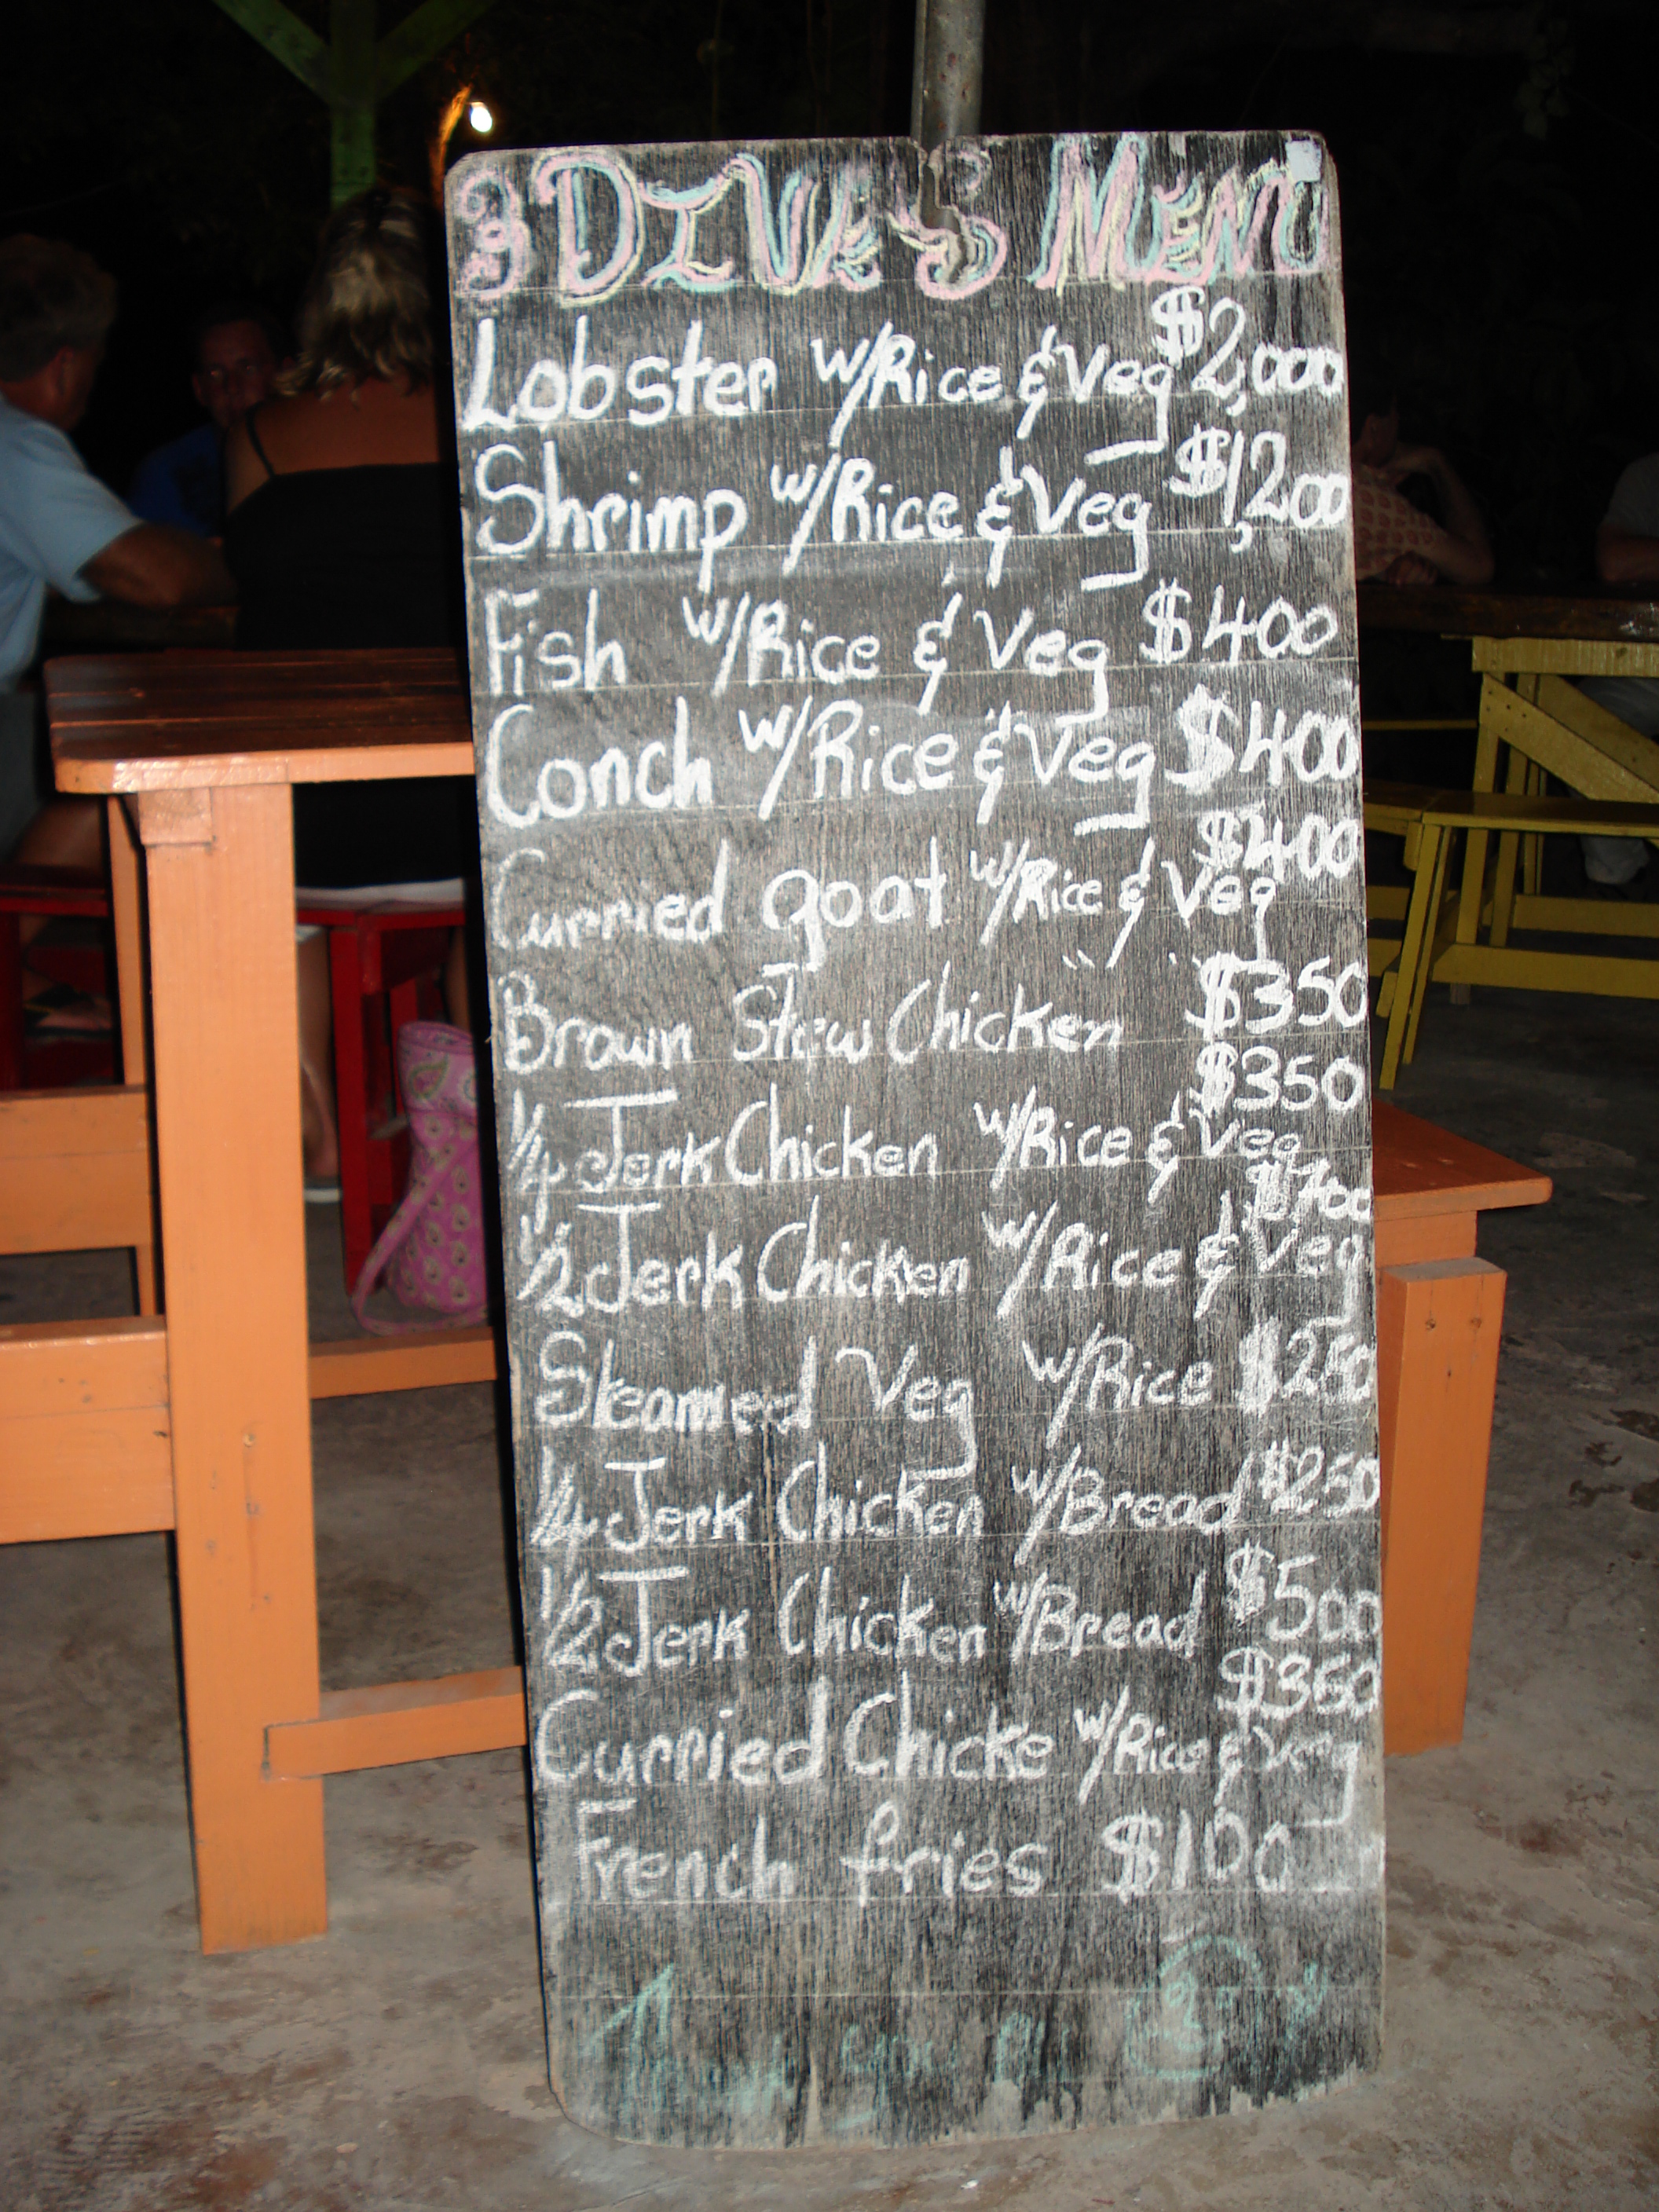 3 DIVES MENU
Lobster w/Rice & Veg $2,000
Shrimp w/Rice & Veg $1,200
Fish w/Rice & Veg $400
Conch w/Rice & Veg $400
Curried goat w/Rice & Veg $400
Brown Stew Chicken " " $350
1/4 Jerk Chicken w/Rice & Veg $350
1/2 Jerk Chicken w/Rice & Veg $700
Steamed Veg w/Rice $250
1/4 Jerk Chicken w/Bread $250
1/2 Jerk Chicken w/Bread $500
Curried Chicke w/Rice & Veg $350
French fries $100